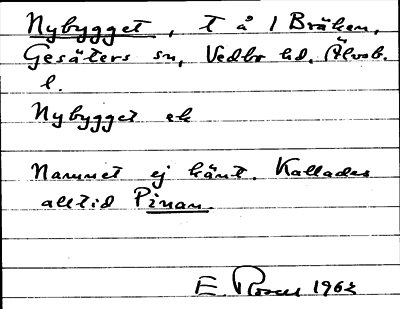 Nybygget, t å 1 Bräken,
Gesäters sn, Vedbo hd, Älvsb.
l.
Nybygget ek
Namnet ej känt. Kallades
alltid Pinan.
E. Rosell 1962